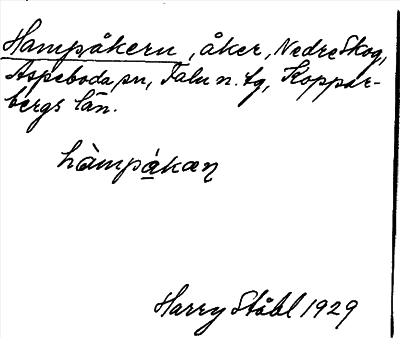 Hampåkern, åker, Nedre Skog,
Aspeboda sn, Falu n. tg, Koppar-
bergs län.
hàmpákæņ
Harry Ståhl 1929